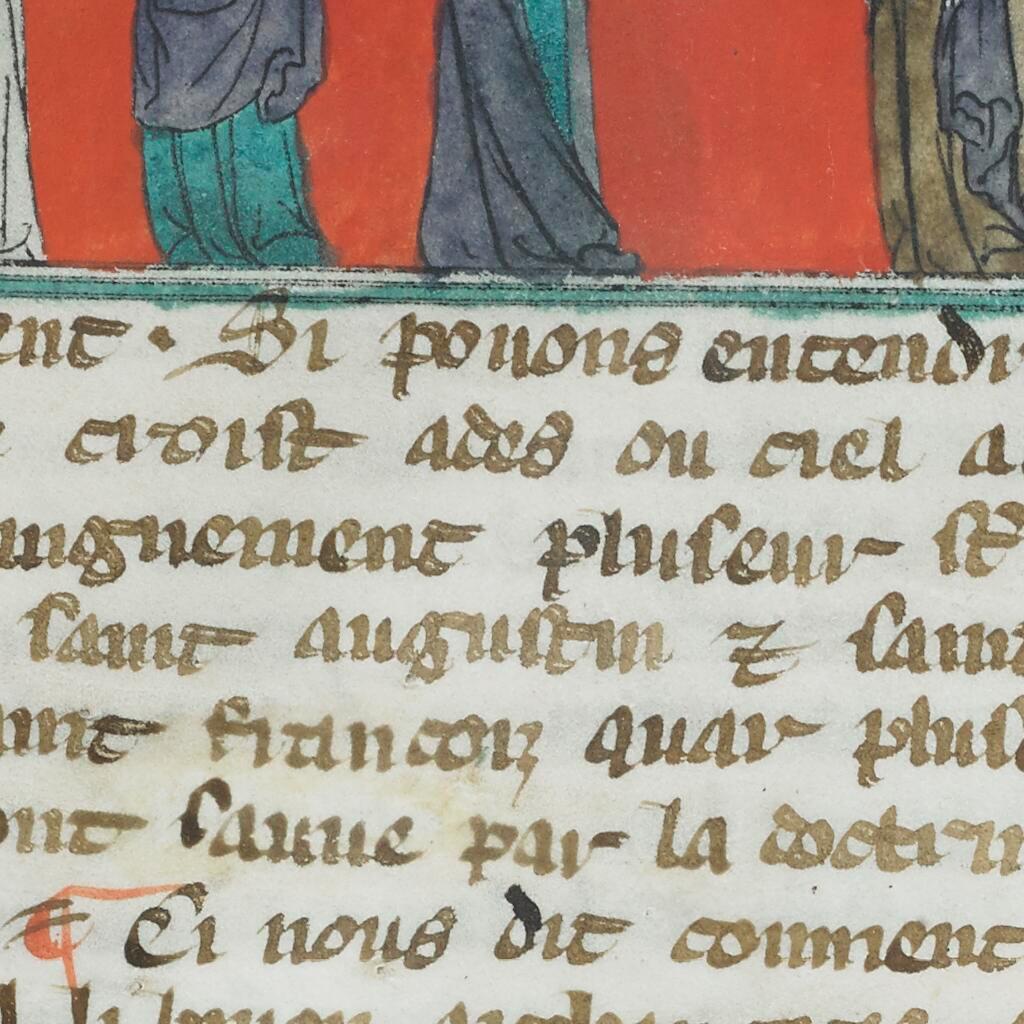 ent · Si pouons entendr
croist ades ou ciel a
ingnement pluseur st
saint augustin ⁊ saint
aint francois quar plus
ont sauue par la doctrin
¶ Ci nous dit comment